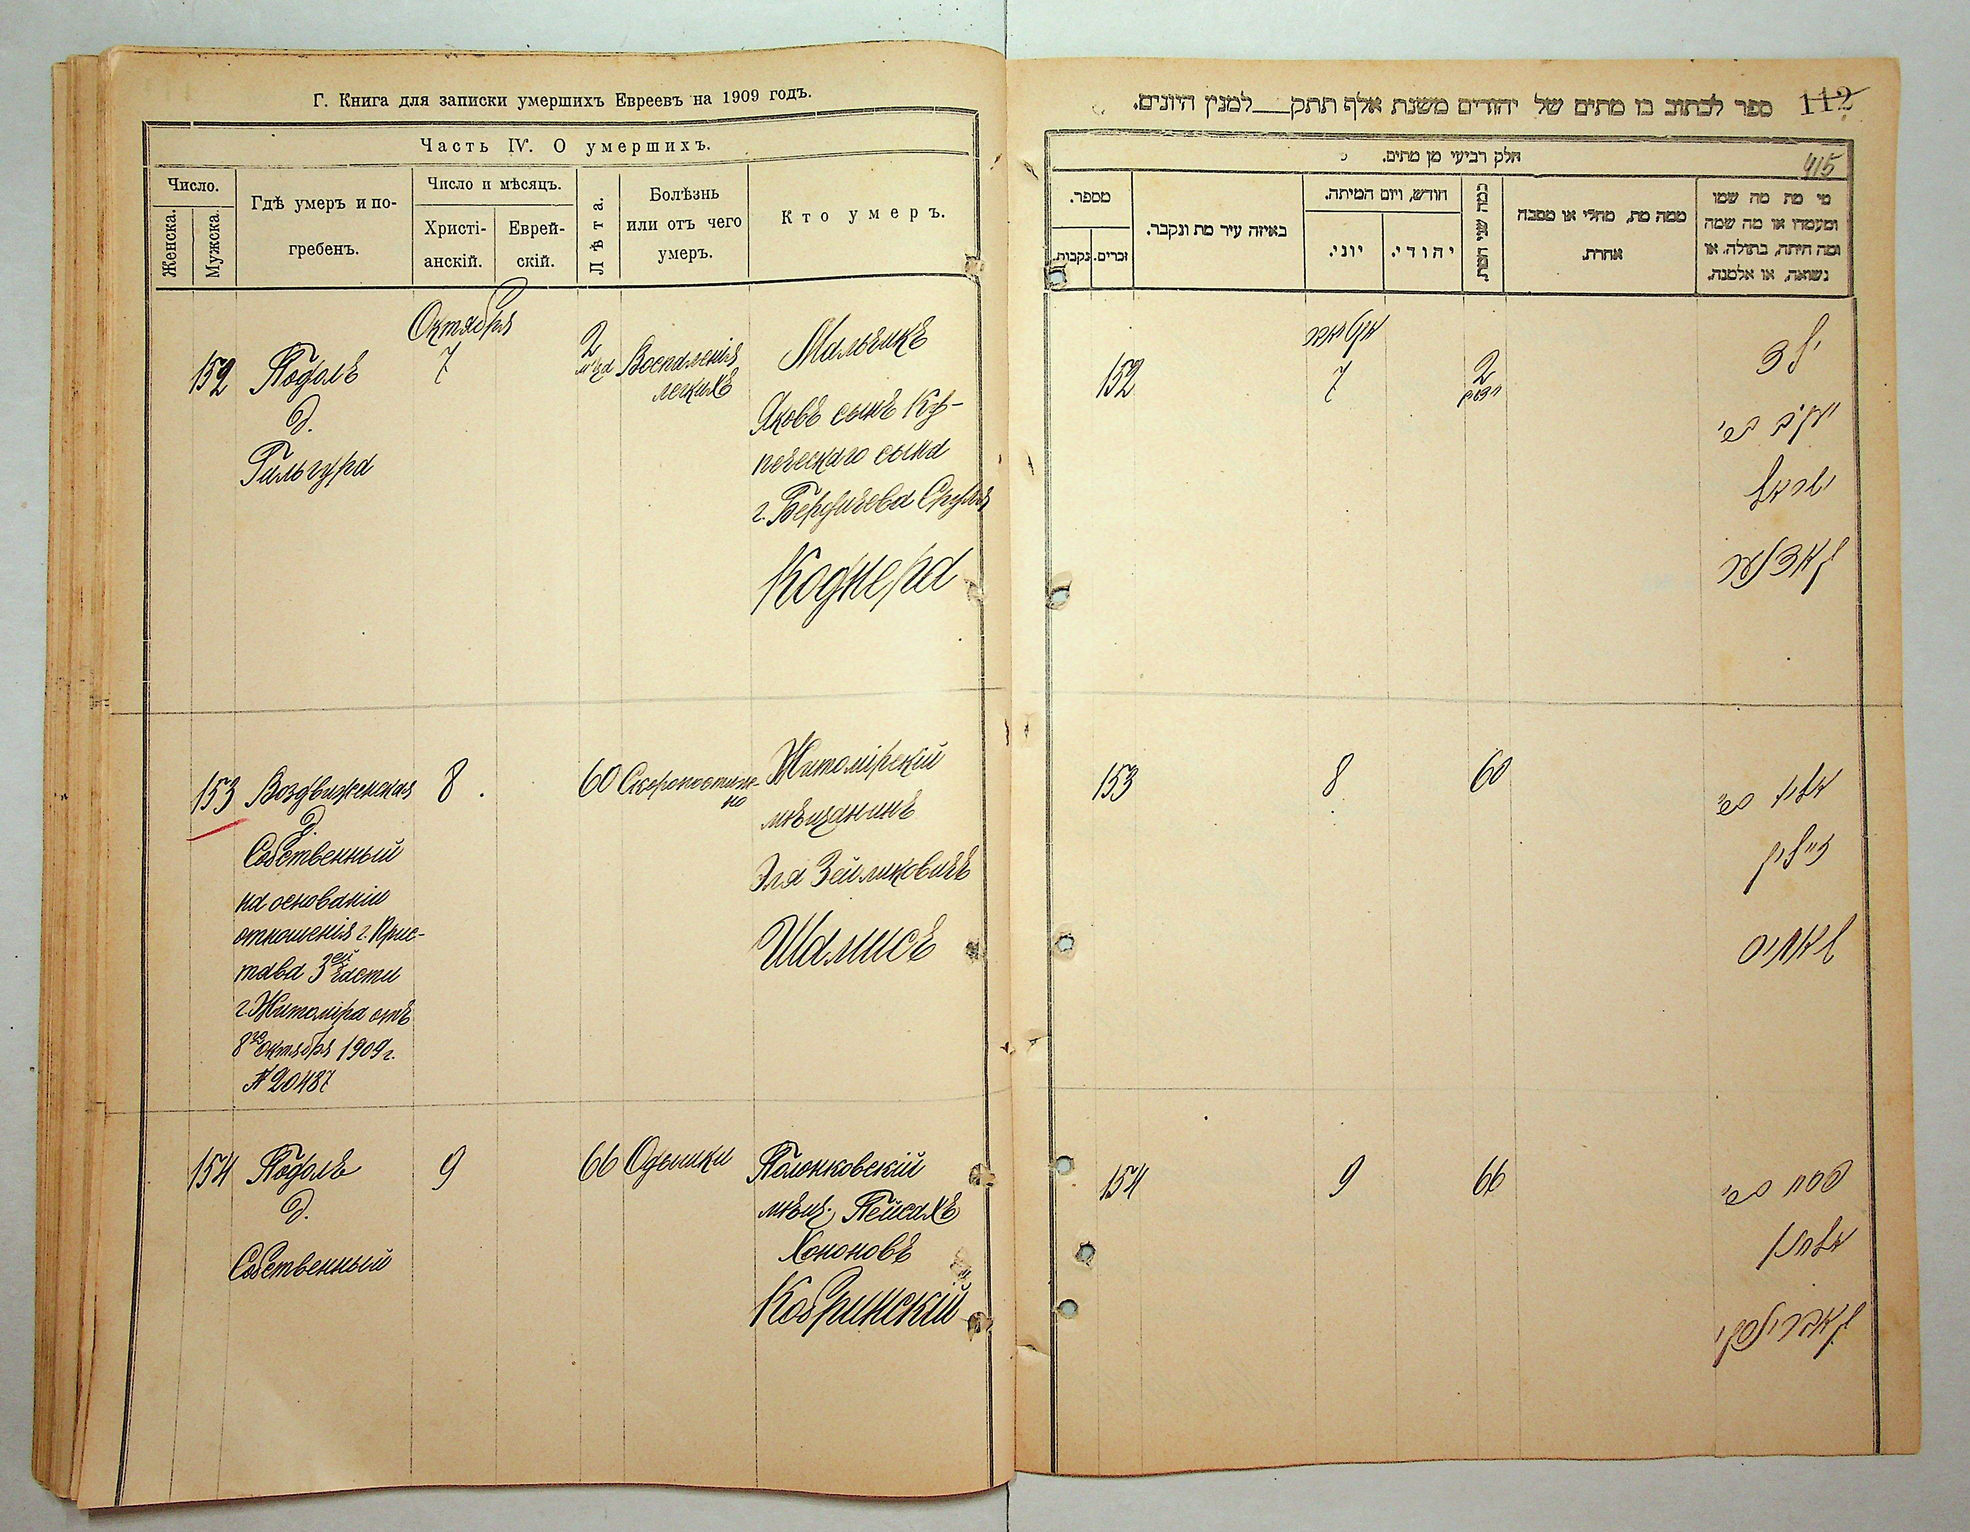 Г. Книга для записки умершихъ Евреевъ на 1909 годъ.
Часть IV. О умершихъ.
Число.
Женска.
Мужска.
Гдѣ умеръ и по-
гребенъ.
Число и мѣсяцъ.
Христі-
анскій.
Еврей-
скій.
Лѣта.
Болѣзнь
или отъ чего
умеръ.
Кто умеръ.
152
Подолъ
д.
Гальгура
Октября
7
2
м-ца
Воспаленія
легкихъ
Мальчикъ
Яковъ сынъ Ку-
печескаго сына
г. Бердичева Сруля
153
Воздвиженская
д.
Собственный
на основаніи
отношенія г. Прис-
тава 3ей части
г. Житоміра отъ
8го октября 1909 г.
№ 20487
8
60
Скоропостиж-
но
Житомірскій
мѣщанинъ
Эля Зейликовичъ
Шамисъ
154
Подолъ
д.
Собственный
9
66
Одышки
мѣщ. Пейсахъ
Хононовъ
Кобринскій
112
ספר לכתוב בו מתים של יהודים משנת אלף תתק___למנין היונים.
415
חלק רביעי מן מתים.
מספר.
נקבות.
זכרים.
באיזה עיר מת ונקבר.
חודש, ויום המיתה.
יוני.
יהודי.
כמה שני המת.
ממה מת, מחלי או מסבה
אחרת.
מי מת מה שמו
ומעמדו או מה שמה
ומה היתה, בתולה. או
נשואה, או אלמנה.
152
אקטאבר
7
2
ילד
יעקב בש'
ישראל
153
8
60
זייליק
שאמיס
154
9
66
פסח בש'
אלחנן
קאברינסקי